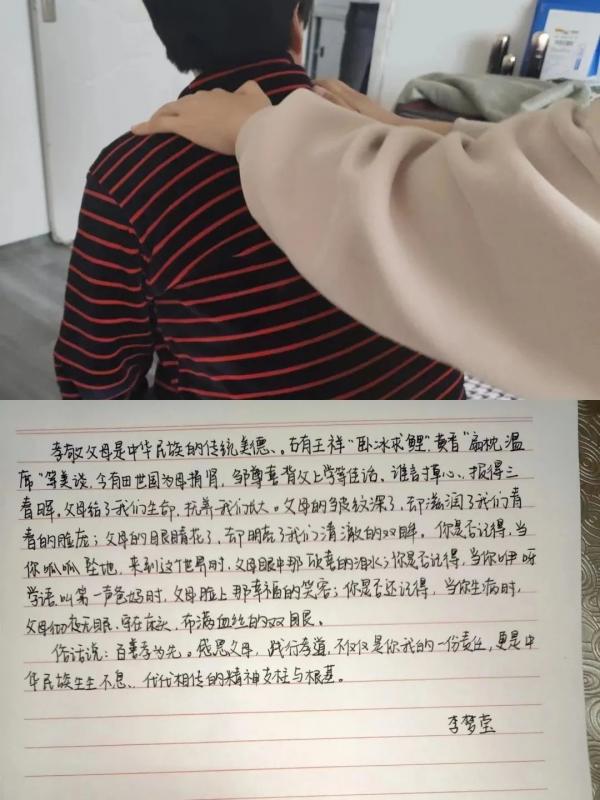 孝敬父母是中华民族的传统美德、。古有王祥“卧冰求鲤”,黄香“扇枕温
席”等美谈,今有田世国为母捐肾,邹尊喜背父上学等佳话。谁言寸草心、报得三
春晖。父母给了我们生命,抚养我们长大。父母的皱纹深了,却滋润了我们青
春的脸庞;父母的眼睛花了,却明亮了我们清澈的双眸。你是否记得,当
你呱呱坠地,来到这个世界时,父母眼中那欣喜的泪水;你是否记得,当你咿呀
学语叫第一声爸妈时,父母脸上那幸福的笑容;你是否还记得,当你生病时,
父母彻夜无眠、守在床头,布满血丝的双眼。
俗话说:百善孝为先。感恩父母,践行孝道,不仅仅是你我的一份责任,更是中
华民族生生不息、代代相传的精神支柱与根基。
李梦莹